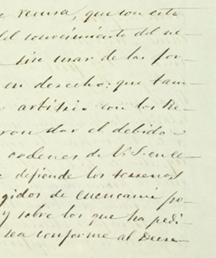 venusa, que con esta
del conocimiento del ne-
sivo usar de las for-
en derecho: que tam-
arbitrio con los Re-
ron dar el debido
ordenes de V.S. en le
defiende los terrenos
gidos de Cuencamé po-
y sobre los que ha pedi-
sea conforme al Decre-